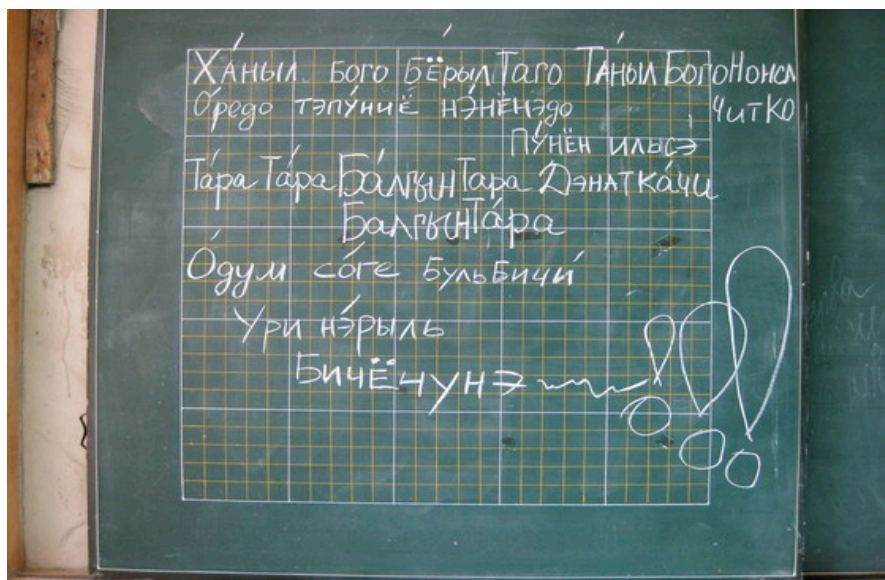 Ха́ныл бого Бёрыл Таго Та́ныл Бого Нонсл
О́редо тэпу́ниё нэ́нёнэдо читко
Пу́нён илысэ́
Та́ра Та́ра Ба́лгын Тара Дэнатка́чи
Балгын Та́ра
О́дум со́ге бульбичи́
Ури нэ́рыль
Бичёчунэ !!!